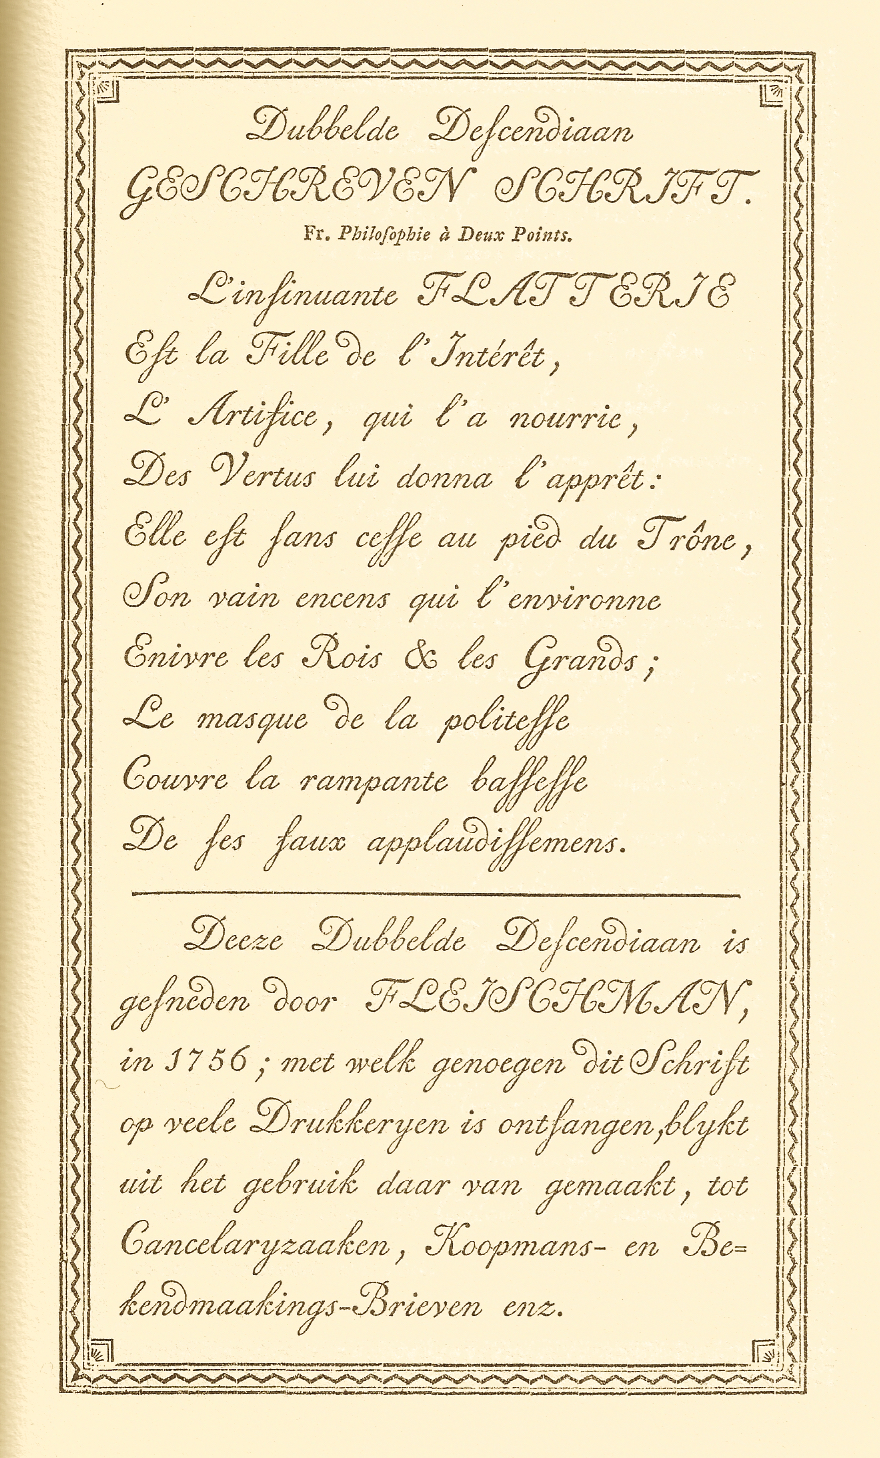 Dubbelde Deſcendiaan
GESCHREVEN SCHRIFT.
Fr. Philoſophie à Deux Points.
L'inſinuante FLATTERIE
Eſt la Fille de l'Intérêt,
L'Artifice, qui l'a nourrie,
Des Vertus lui donna l'apprêt:
Elle eſt ſans ceſſe au pied du Trône,
Son vain encens qui l'environne
Enivre les Rois & les Grands;
Le masque de la politeſſe
Couvre la rampante baſſeſſe
De ſes faux applaudiſſemens.
Deeze Dubbelde Deſcendiaan is
geſneden door FLEISCHMAN,
in 1756; met welk genoegen dit Schrift
op veele Drukkeryen is ontfangen, blykt
uit het gebruik daar van gemaakt, tot
Cancelaryzaaken, Koopmans- en Be=
kendmaakings-Brieven enz.